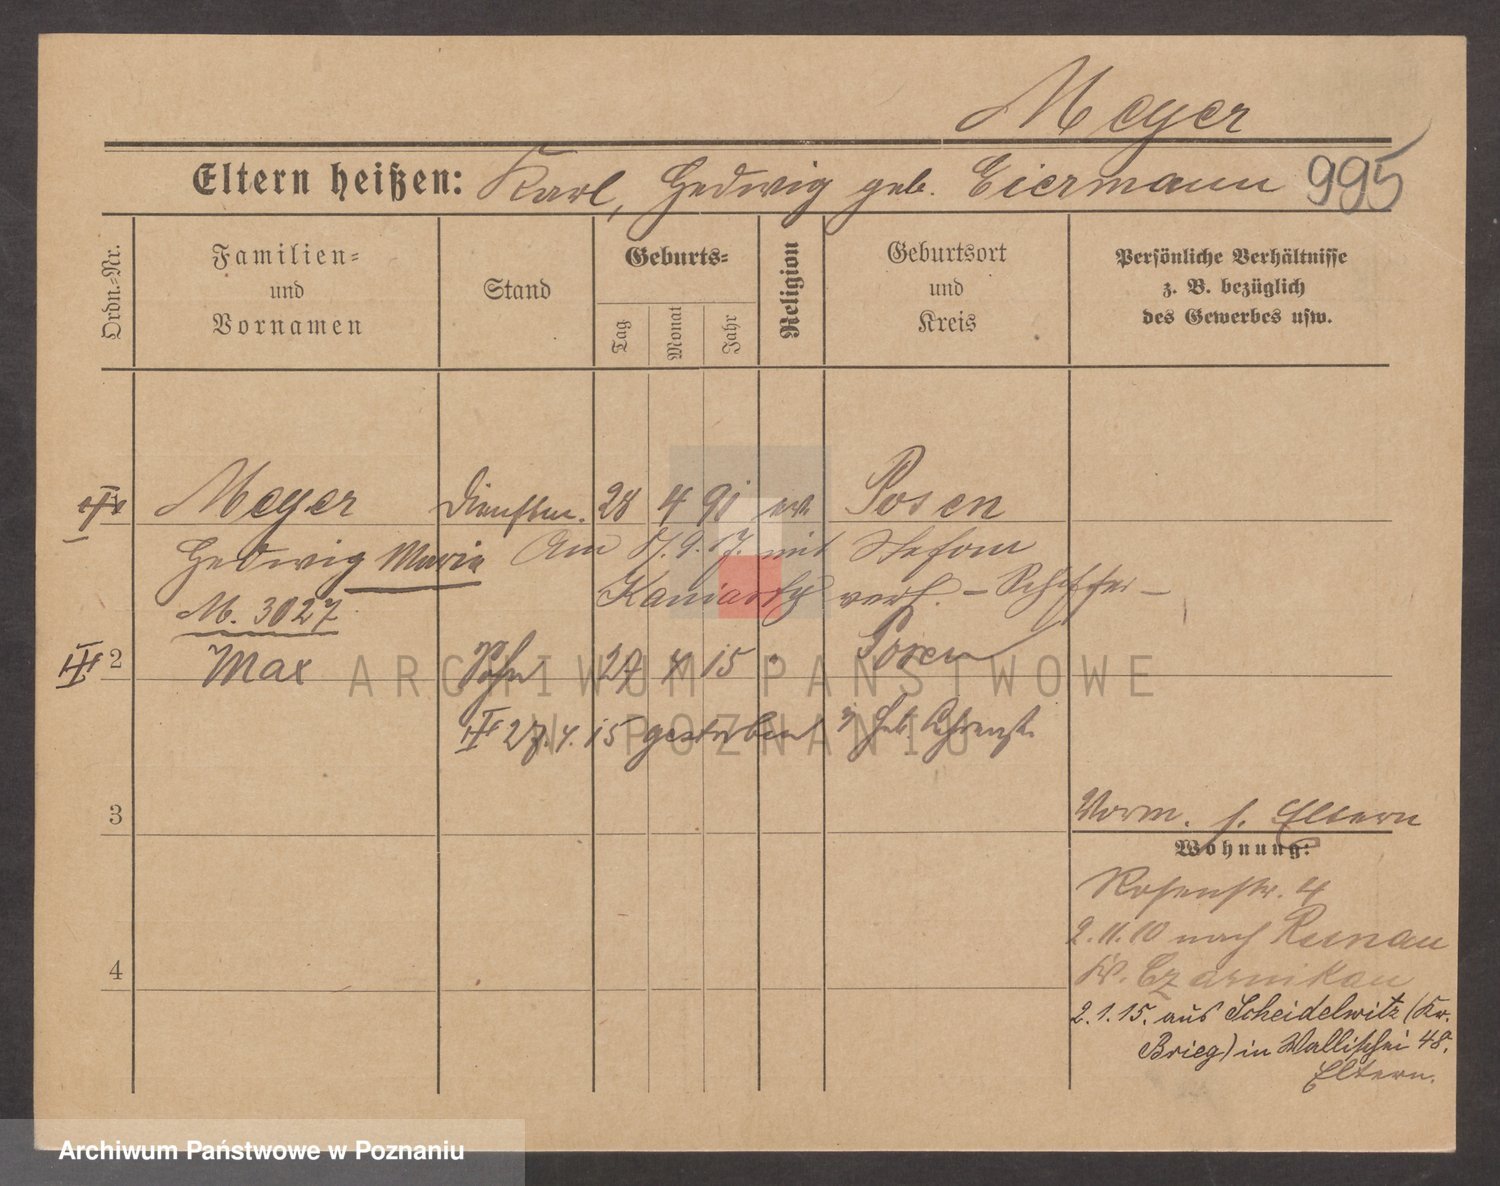 Meyer
Eltern heißen: Karl, Hedwig geb. Eiermann 995
Ordn.-Nr.
Familien-
und
Vornamen
Stand
Geburts-
Tag
Monat
Jahr
Religion
Geburtsort
und
Kreis
Persönliche Verhältnisse
z. B. bezüglich
des Gewerbes usw.
Meyer Dienstm. 28 4 91 ev. Posen
Hedwig Marie Am 9. 17. mit Stefan
verh. – Schiffer –
M. 3027
2 Max Sohn 27 4 15 Posen
27.4.15
3
Vorm. s. Eltern
Wohnung:
Rosenstr. 4
2.11.10 nach Runau
Kr. Czarnikau
4
2.1.15. aus Scheidelwitz (Kr.
Brieg) in Wallischei 48.
Eltern.
ARCHIWUM PAŃSTWOWE
W POZNANIU
Archiwum Państwowe w Poznaniu